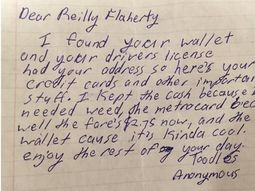 Dear Reilly Flaherty
I found your wallet
and your drivers license
had your address so here's your
credit cards and other important
stuff. I kept the cash because I
needed weed, the metrocard bec
well the fare's $2.75 now, and the
wallet cause it's kinda cool.
enjoy the rest of your day.
Toodles
Anonymous